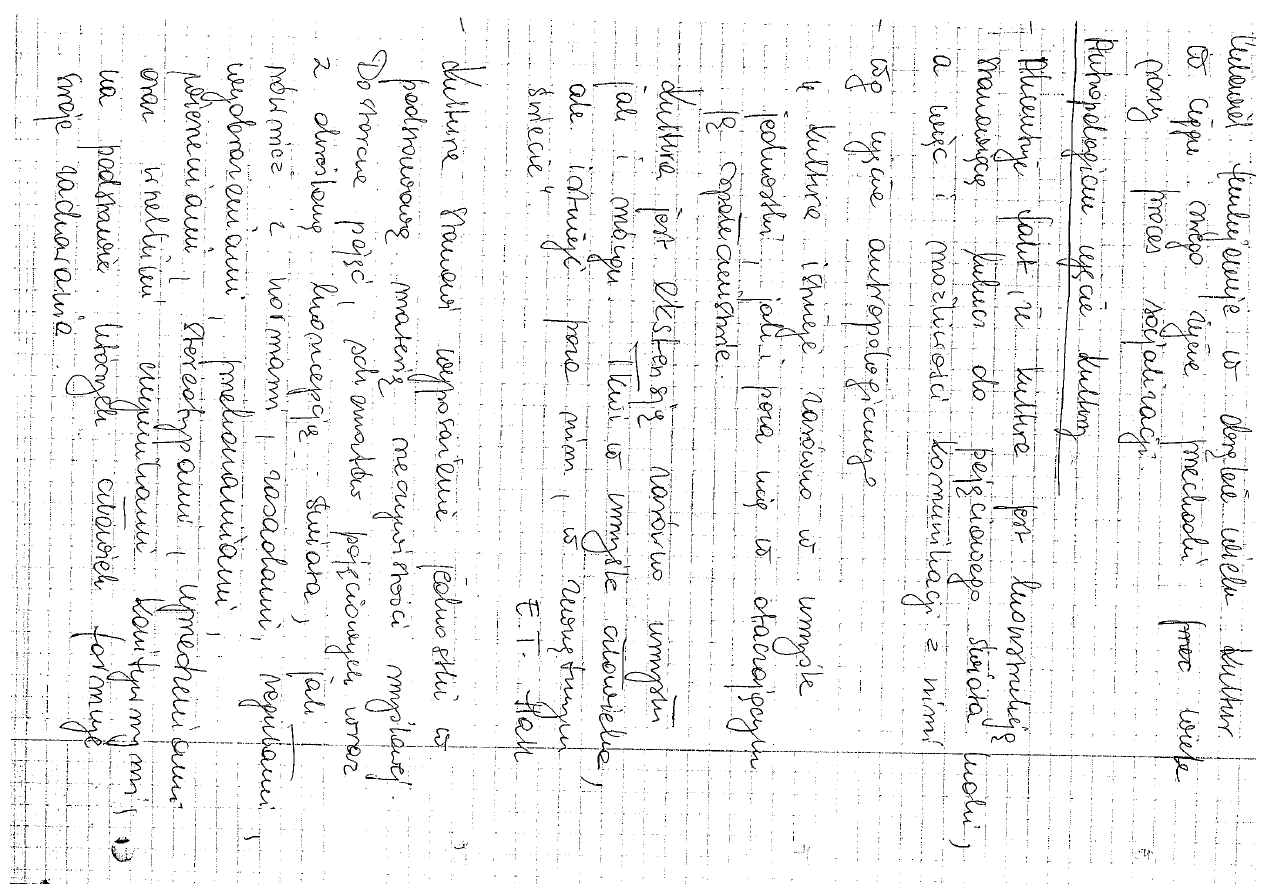 Człowiek funkcjonuje w obrębie wielu kultur
w ciągu swego życia przechodzi przez wiele
razy proces socjalizacji.
Antropologiczne ujęcie kultury
- Akcentuje fakt, że kultura jest konstrukcją
stanowiącą klucz do pojęciowego świata ludzi,
a więc i możliwości komunikacji z nimi
- wg ujęcia antropologicznego
↳ kultura istnieje zarówno w umyśle
jednostki, jak i poza nią w otaczającym
ją społeczeństwie.
Kultura jest ekstensją zarówno umysłu
jak i mózgu. Tkwi w umyśle człowieka,
ale istnieje poza nim, w zewnętrznym
świecie"
E.T. Hall
- kultura stanowi wyposażenie jednostki w
podstawową materię rzeczywistości myślowej.
Dostarcza pojęć, schematów pojęciowych wraz
z określoną koncepcją świata, jak
również z normami, zasadami, regułami,
wyobrażeniami, przekonaniami,
pojęciami, stereotypami, uprzedzeniami
oraz wszelkimi czynnikami kognitywnymi,
na podstawie których człowiek formuje
swoje zachowania.